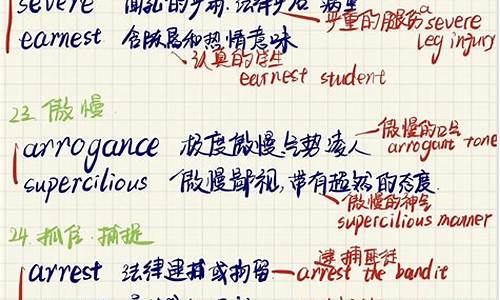 severe
严重的腿伤 a severe leg injury
earnest 含严肃和热情意味
认真的学生
earnest student
23. 傲慢
arrogance 极度傲慢,气势凌人
傲慢的口气
arrogant tone
supercilious 傲慢鄙视,带有超然的态度.
傲慢的神气
supercilious manner
24. 抓住. 捕捉
arrest 法律逮捕或拘留
逮捕匪徒
arrest the bandit